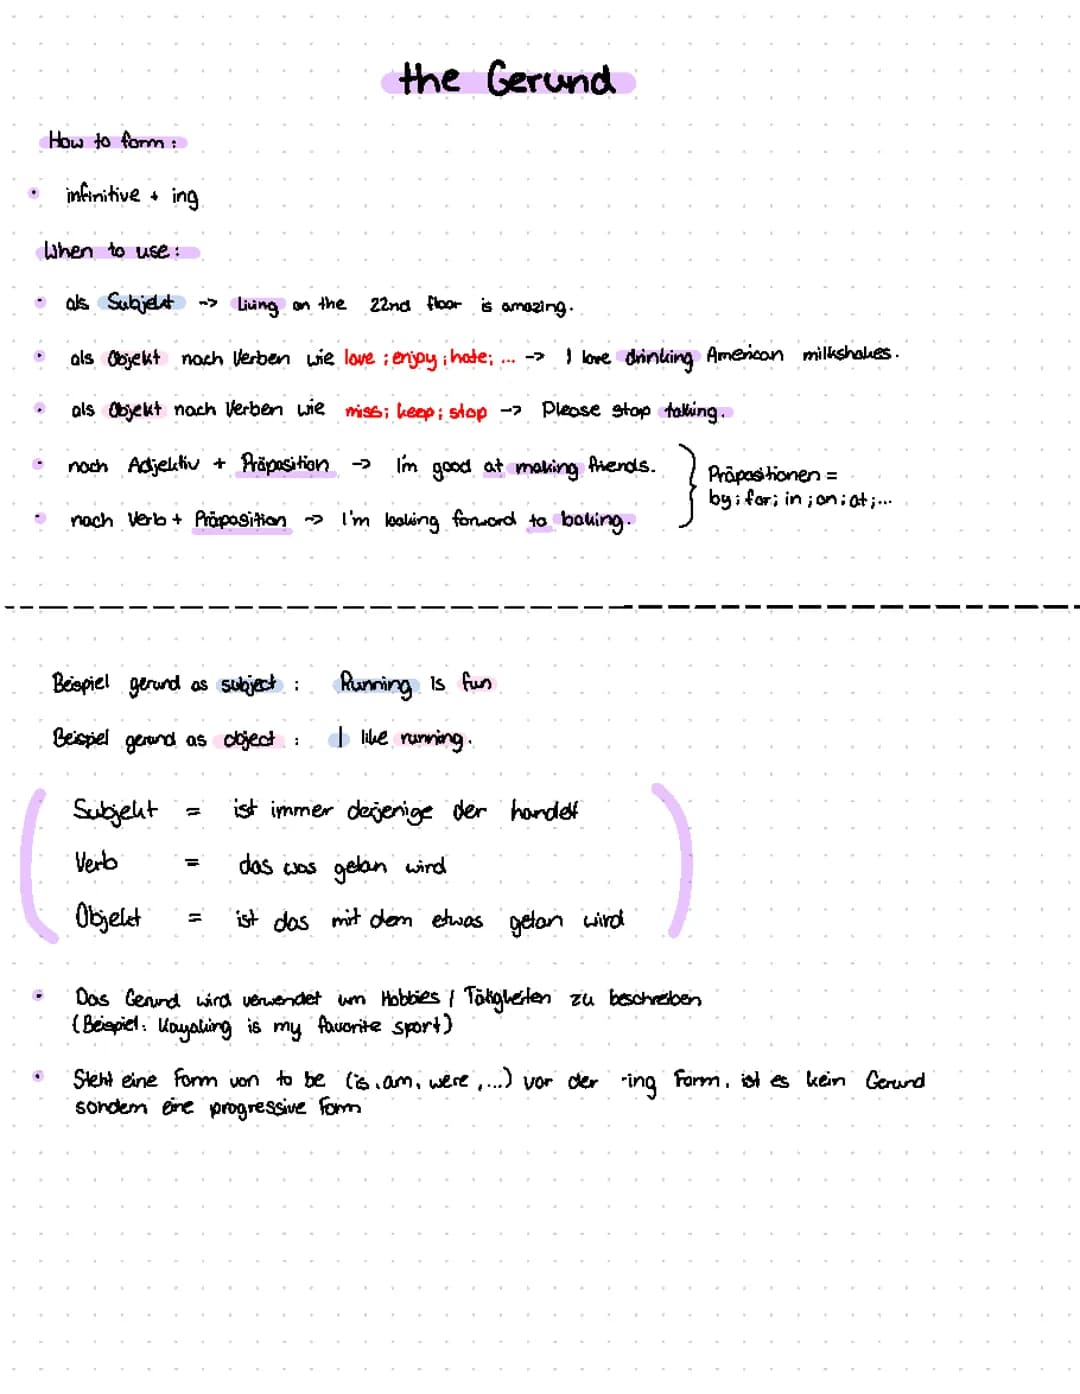 the Gerund
How to form:
• infinitive + ing
When to use:
• als Subjekt -> Living on the 22nd floor is amazing.
• als Objekt nach Verben wie love; enjoy; hate; ... -> I love drinking American milkshakes.
• als Objekt nach Verben wie miss; keep; stop -> Please stop talking.
• nach Adjektiv + Präposition -> I'm good at making friends.
• nach Verb + Präposition -> I'm looking forward to baking.
Präpositionen =
by; for; in; on; at; ...
Beispiel gerund as subject: Running is fun
Beispiel gerund as object: I like running.
Subjekt = ist immer derjenige der handelt
Verb = das was getan wird
Objekt = ist das mit dem etwas getan wird
• Das Gerund wird verwendet um Hobbies / Tätigkeiten zu beschreiben
(Beispiel: Kayaking is my favorite sport)
• Steht eine Form von to be (is, am, were, ...) vor der -ing Form, ist es kein Gerund
sondern eine progressive Form